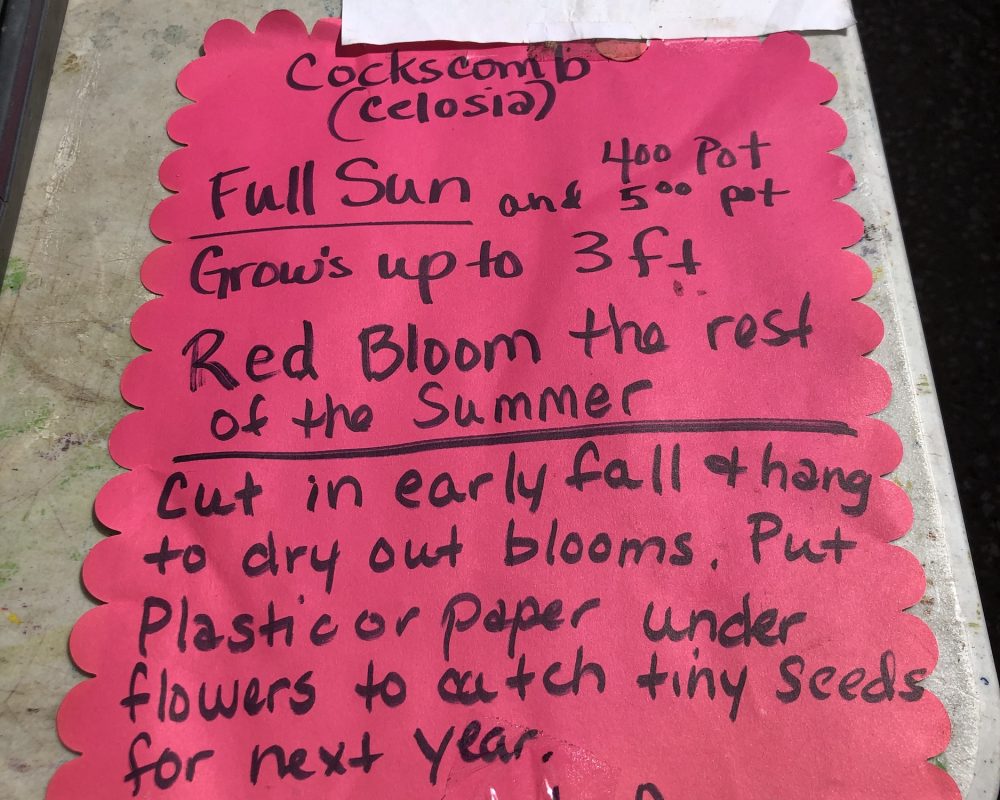 Cockscomb
(Celosia)
400 Pot
Full Sun and 5⁰⁰ pot
Grow's up to 3 ft
Red Bloom the rest
of the Summer
Cut in early fall & hang
to dry out blooms. Put
Plastic or paper under
flowers to catch tiny Seeds
for next year.